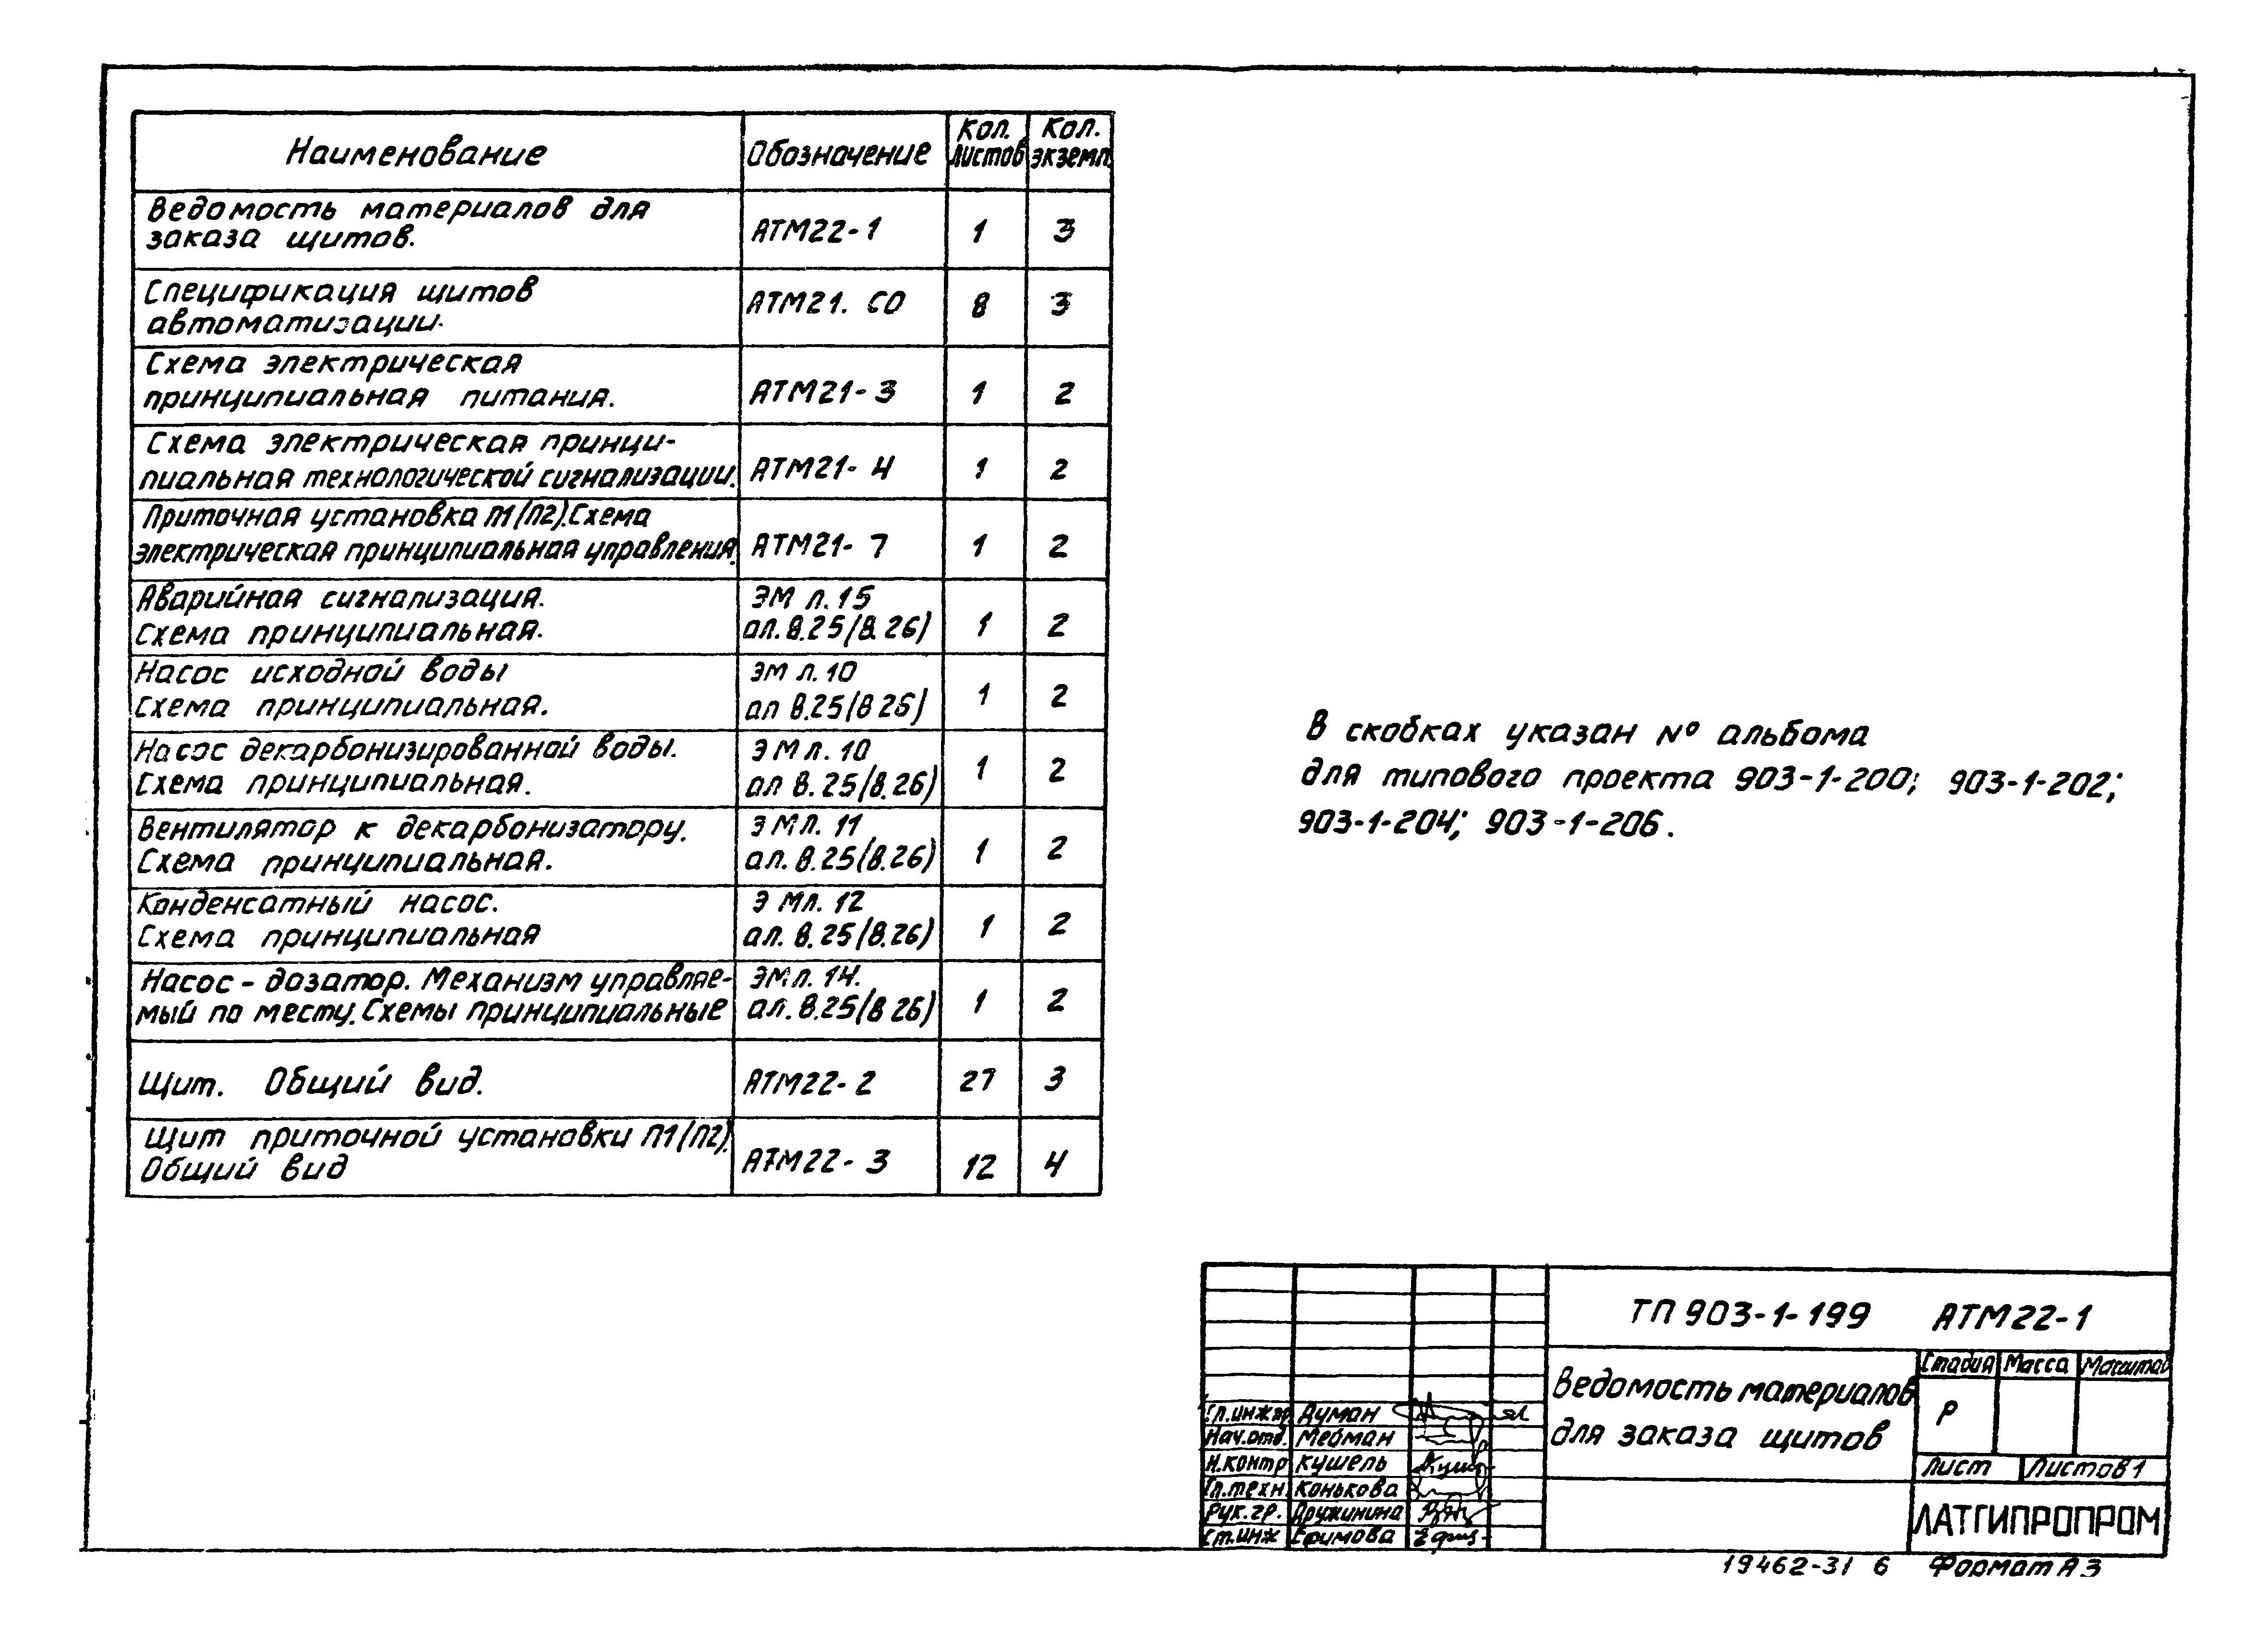 Наименование
Обозначение
Кол. листов
Кол. экземп.
Ведомость материалов для
заказа щитов.
АТМ22-1
1
3
Спецификация щитов
автоматизации.
АТМ21. СО
8
3
Схема электрическая
принципиальная питания.
АТМ21-3
1
2
Схема электрическая принци-
пиальная технологической сигнализации.
АТМ21-4
1
2
Приточная установка П1(П2).Схема
электрическая принципиальная управления.
АТМ21-7
1
2
Аварийная сигнализация.
Схема принципиальная.
ЭМ л.15
ал.8.25(8.26)
1
2
Насос исходной воды
Схема принципиальная.
ЭМ л.10
ал 8.25(8 26)
1
2
Насос декарбонизированной воды.
Схема принципиальная.
ЭМ л.10
ал 8.25(8.26)
1
2
Вентилятор к декарбонизатору.
Схема принципиальная.
ЭМ л. 11
ал. 8.25(8.26)
1
2
Конденсатный насос.
Схема принципиальная
ЭМ л. 12
ал. 8.25(8.26)
1
2
Насос-дозатор. Механизм управляе-
мый по месту. Схемы принципиальные
ЭМ л. 14.
ал. 8.25(8 26)
1
2
Щит. Общий вид.
АТМ22-2
27
3
Щит приточной установки П1(П2).
Общий вид
АТМ22-3
12
4
В скобках указан № альбома
для типового проекта 903-1-200; 903-1-202;
903-1-204; 903-1-206.
ТП 903-1-199 АТМ22-1
Ведомость материалов
для заказа щитов
Стадия Масса Масштаб
Р
Лист Листов 1
ЛАТГИПРОПРОМ
Гл.инж.пр Думан
Нач.отд. Мебман
Н.контр Кушель
Гл.техн. Конькова
Рук.гр. Дружинина
Ст.инж Ефимова
19462-31 6 Формат А3